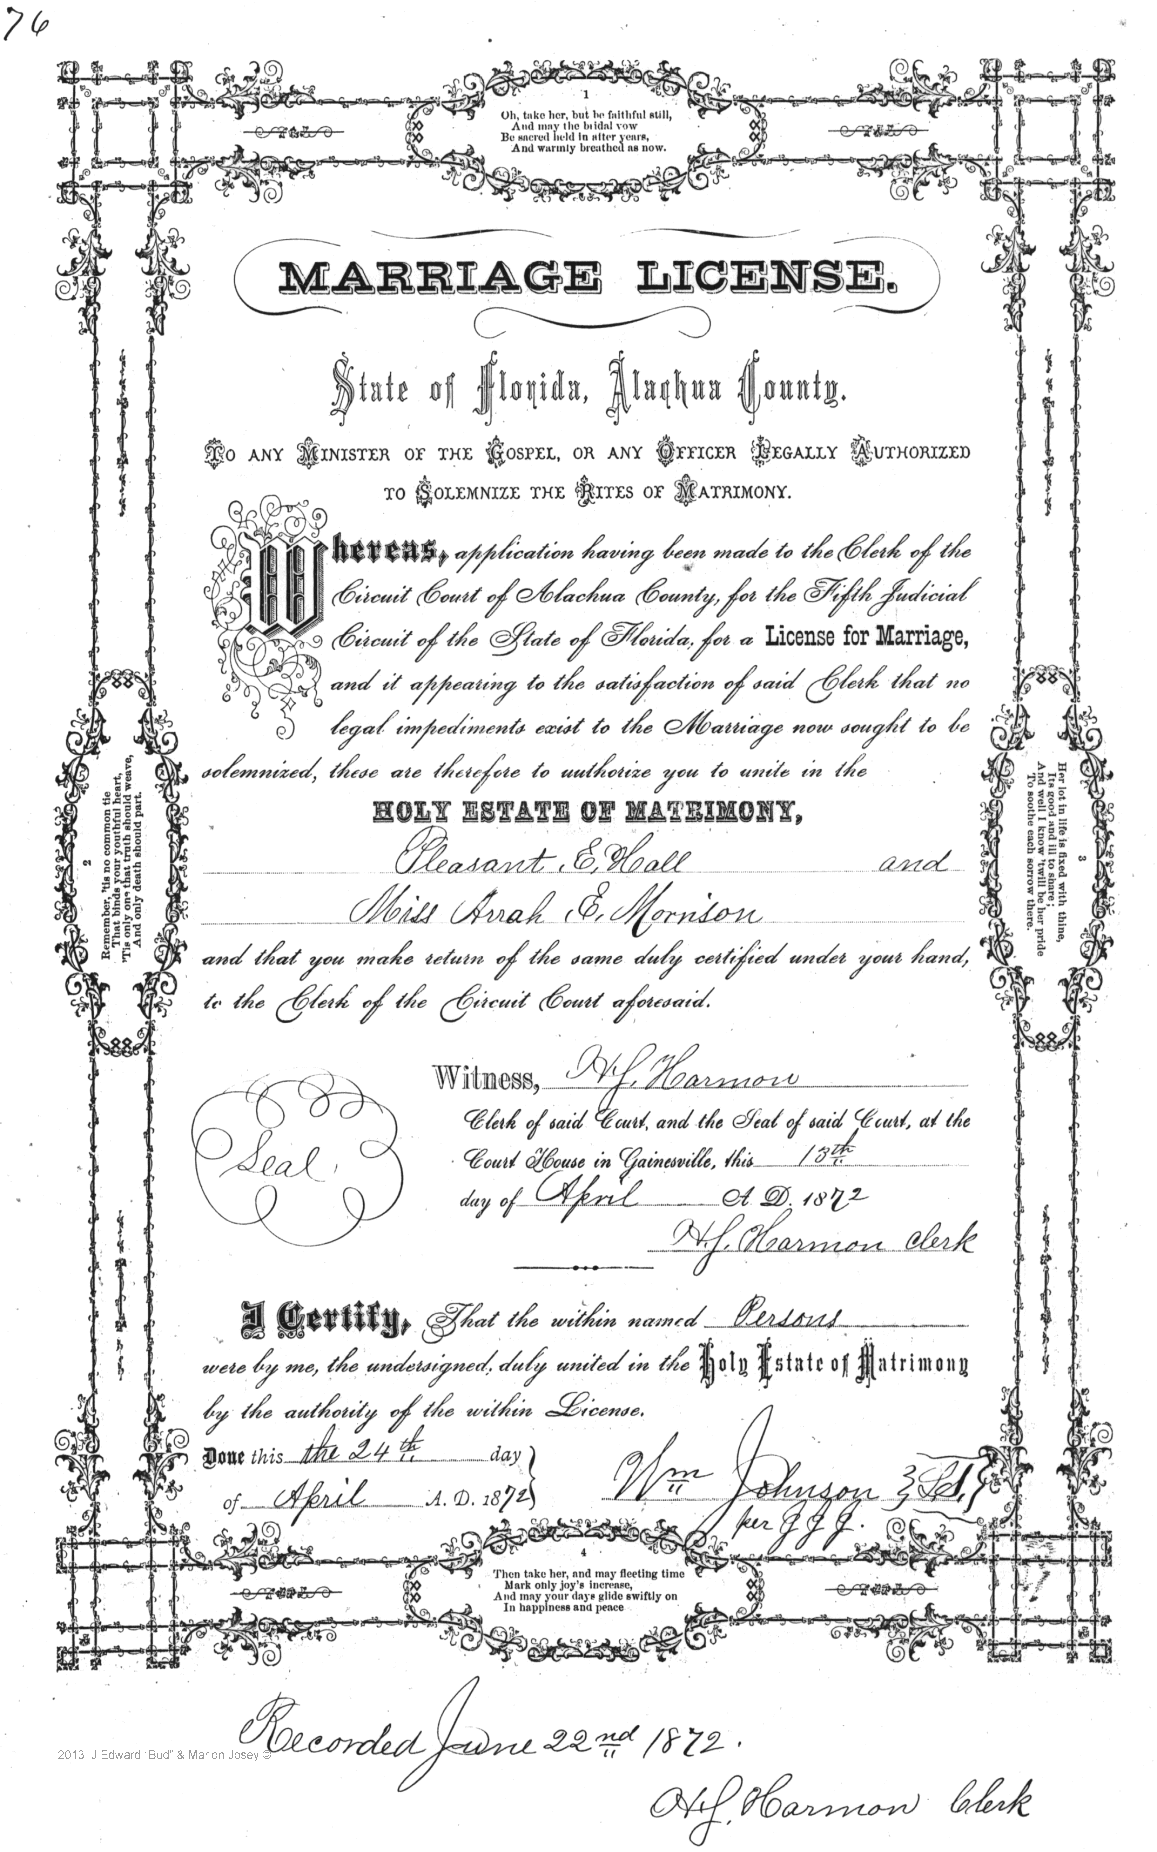 76
1
Oh, take her, but be faithful still,
And may the bridal vow
Be sacred held in after years,
And warmly breathed as now.
MARRIAGE LICENSE.
State of Florida, Alachua County.
TO ANY MINISTER OF THE GOSPEL, OR ANY OFFICER LEGALLY AUTHORIZED
TO SOLEMNIZE THE RITES OF MATRIMONY.
Whereas, application having been made to the Clerk of the
Circuit Court of Alachua County, for the Fifth Judicial
Circuit of the State of Florida, for a License for Marriage,
and it appearing to the satisfaction of said Clerk that no
legal impediments exist to the Marriage now sought to be
solemnized, these are therefore to authorize you to unite in the
HOLY ESTATE OF MATRIMONY,
Pleasant E. Hall and
Miss Arrah E. Morrison
and that you make return of the same duly certified under your hand,
to the Clerk of the Circuit Court aforesaid.
2
Remember, 'tis no common tie
That binds your youthful heart,
'Tis only one that truth should weave,
And only death should part.
3
Her lot in life is fixed with thine,
Its good and ill to share;
And well I know 'twill be her pride
To soothe each sorrow there.
Witness, H. J. Harmon
Clerk of said Court, and the Seal of said Court, at the
Court House in Gainesville, this 13th
day of April A. D. 1872
Seal.
H. J. Harmon Clerk
I Certify, That the within named Persons
were by me, the undersigned, duly united in the Holy Estate of Matrimony
by the authority of the within License.
Done this the 24th day
of April A. D. 1872
Wm Johnson
per J J J.
4
Then take her, and may fleeting time
Mark only joy's increase,
And may your days glide swiftly on
In happiness and peace
Recorded June 22nd 1872.
2013 J Edward "Bud" & Marion Josey ©
H. J. Harmon Clerk